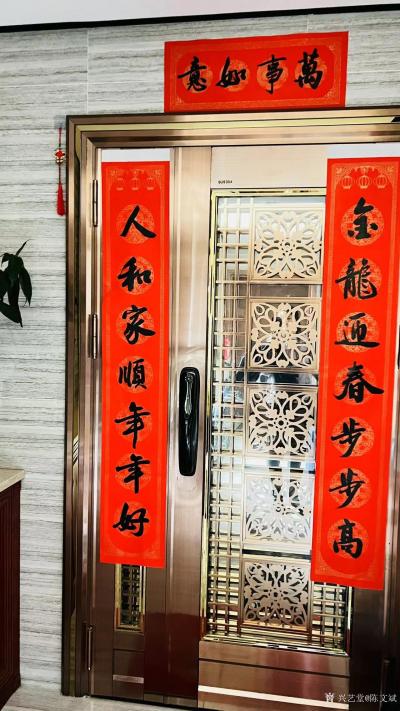 萬事如意
金龍迎春步步高
人和家順年年好
SUS304
兴艺堂@陈文斌